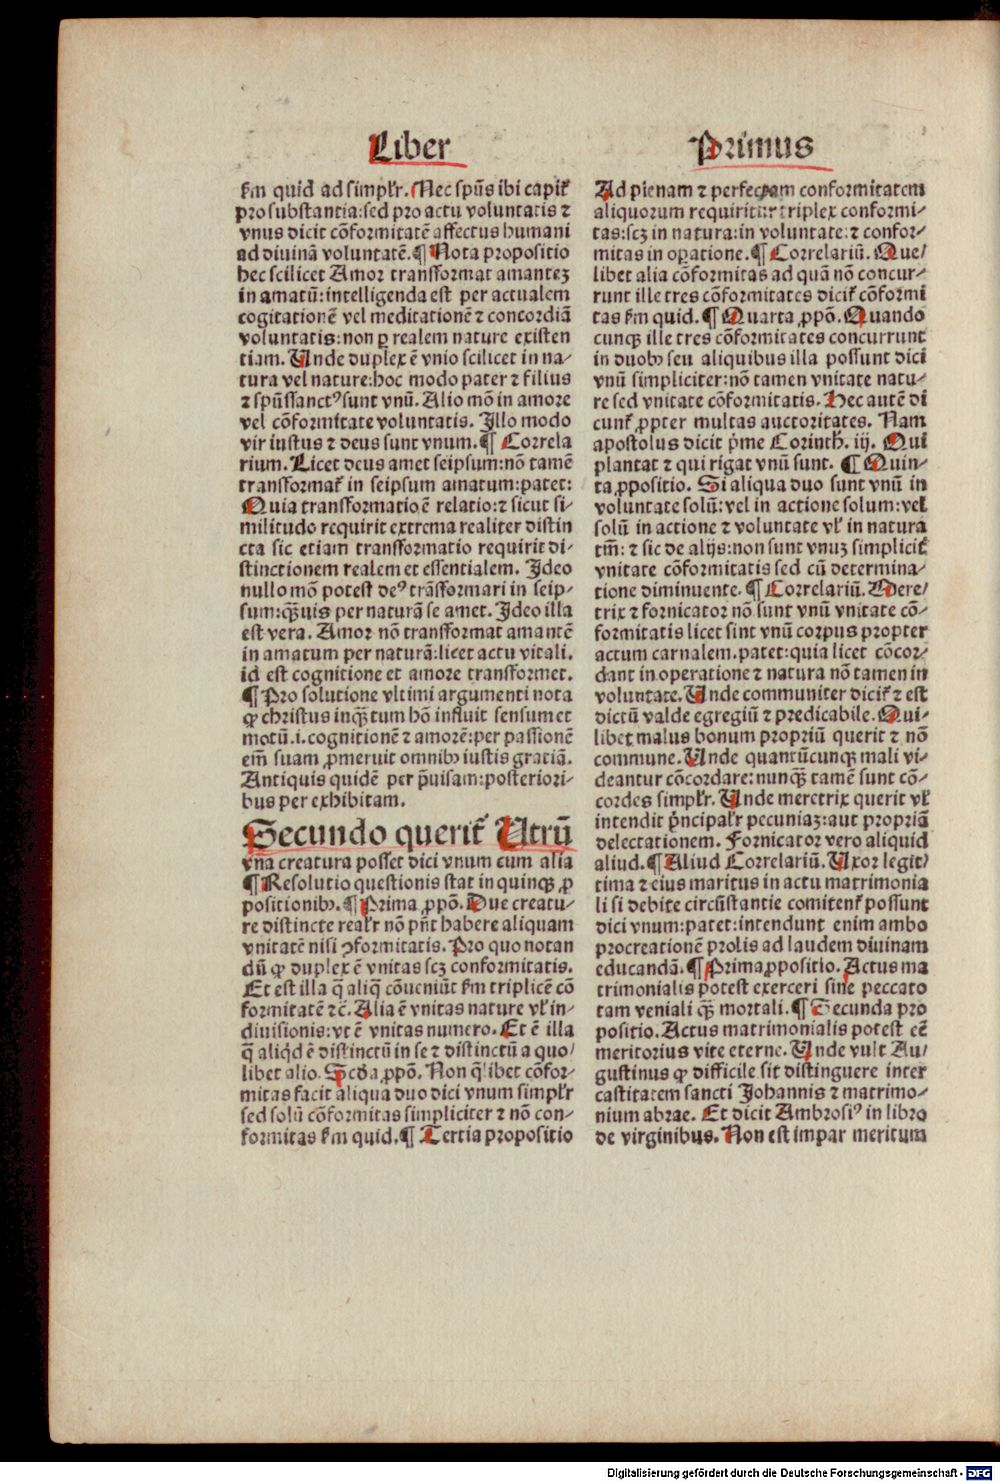 Liber
Primus
ẜm quid ad simplr̃. Nec spũs ibi capit᷑
pro substantia: sed pro actu voluntatis ⁊
vnus dicit cõformitatẽ affectus humani
ad diuinã voluntatẽ. ¶ Nota propositio
hec scilicet Amor transformat amantez
in amatũ: intelligenda est per actualem
cogitationẽ vel meditationẽ ⁊ concordiã
voluntatis: non ꝑ realem nature existen
tiam. Unde duplex ẽ vnio scilicet in na-
tura vel nature: hoc modo pater ⁊ filius
⁊ spũssanctꝰ sunt vnũ. Alio mõ in amore
vel cõformitate voluntatis. Illo modo
vir iustus ⁊ deus sunt vnum. ¶ Correla
rium. Licet deus amet seipsum: nõ tamẽ
transformat᷑ in seipsum amatum: patet:
Quia transformatio ẽ relatio: ⁊ sicut si-
militudo requirit extrema realiter distin
cta sic etiam transformatio requirit di-
stinctionem realem et essentialem. Ideo
nullo mõ potest deꝰ trãsformari in seip-
sum: ꝙ̃uis per naturã se amet. Ideo illa
est vera. Amor nõ transformat amantẽ
in amatum per naturã: licet actu vitali.
id est cognitione et amore transformet.
¶ Pro solutione vltimi argumenti nota
ꝙ christus inqꝫ̃tum hõ influit sensum et
motũ .i. cognitionẽ ⁊ amorẽ: per passionẽ
em̃ suam ꝓmeruit omnibꝰ iustis gratiã.
Antiquis quidẽ per p̃uisam: posteriori-
bus per exhibitam.
Secundo querit᷑ Utrũ
vna creatura posset dici vnum cum alia
¶ Resolutio questionis stat in quinqꝫ ꝓ
positionibꝰ. ¶ Prima ꝓpõ. Due creatu-
re distincte realr̃ nõ pñt habere aliquam
vnitatẽ nisi ꝯformitatis. Pro quo notan
dũ ꝙ duplex ẽ vnitas scꝫ conformitatis.
Et est illa q̃ aliq̃ cõueniũt ẜm triplicẽ cõ
formitatẽ ⁊c̃. Alia ẽ vnitas nature vl̃ in-
diuisionis: vt ẽ vnitas numero. Et ẽ illa
q̃ aliqͥd ẽ distinctũ in se ⁊ distinctũ a quo/
libet alio. Scðа ꝓpõ. Non q̃libet cõfor-
mitas facit aliqua duo dici vnum simplr̃
sed solũ cõformitas simpliciter ⁊ nõ con-
formitas ẜm quid. ¶ Tertia propositio
Ad plenam ⁊ perfectam conformitatem
aliquorum requiritur triplex conformi-
tas: scꝫ in natura: in voluntate: ⁊ confor-
mitas in oꝑatione. ¶ Correlariũ. Que/
libet alia cõformitas ad quã nõ concur-
runt ille tres cõformitates dicit᷑ cõformi
tas ẜm quid. ¶ Quarta ꝓpõ. Quando
cunqꝫ ille tres cõformitates concurrunt
in duobꝰ seu aliquibus illa possunt dici
vnũ simpliciter: nõ tamen vnitate natu-
re sed vnitate cõformitatis. Hec autẽ di
cunt᷑ ꝓpter multas auctoritates. Nam
apostolus dicit p̃me Corinth̃. iij. Qui
plantat ⁊ qui rigat vnũ sunt. ¶ Quin-
ta ꝓpositio. Si aliqua duo sunt vnũ in
voluntate solũ: vel in actione solum: vel
solũ in actione ⁊ voluntate vl̃ in natura
tm̃: ⁊ sic de alijs: non sunt vnuꝫ simplicit᷑
vnitate cõformitatis sed cũ determina-
tione diminuente. ¶ Correlariũ. Mere/
trix ⁊ fornicator nõ sunt vnũ vnitate cõ-
formitatis licet sint vnũ corpus propter
actum carnalem. patet: quia licet cõcor-
dant in operatione ⁊ natura nõ tamen in
voluntate. Unde communiter dicit᷑ ⁊ est
dictũ valde egregiũ ⁊ predicabile. Qui-
libet malus bonum propriũ querit ⁊ nõ
commune. Unde quantũcunqꝫ mali vi-
deantur cõcordare: nunqꝫ̃ tamẽ sunt cõ-
cordes simplr̃. Unde meretrix querit vl̃
intendit p̃ncipalr̃ pecuniaꝫ: aut propriã
delectationem. Fornicator vero aliquid
aliud. ¶ Aliud Correlariũ. Uxor legit/
tima ⁊ eius maritus in actu matrimonia
li si debite circũstantie comitent᷑ possunt
dici vnum: patet: intendunt enim ambo
procreationẽ prolis ad laudem diuinam
educandã. ¶ Prima ꝓpositio. Actus ma
trimonialis potest exerceri sine peccato
tam veniali qꝫ̃ mortali. ¶ Secunda pro
positio. Actus matrimonialis potest eẽ
meritorius vite eterne. Unde vult Au/
gustinus ꝙ difficile sit distinguere inter
castitatem sancti Johannis ⁊ matrimo-
nium abrae. Et dicit Ambrosiꝰ in libro
de virginibus. Non est impar meritum
Digitalisierung gefördert durch die Deutsche Forschungsgemeinschaft - DFG